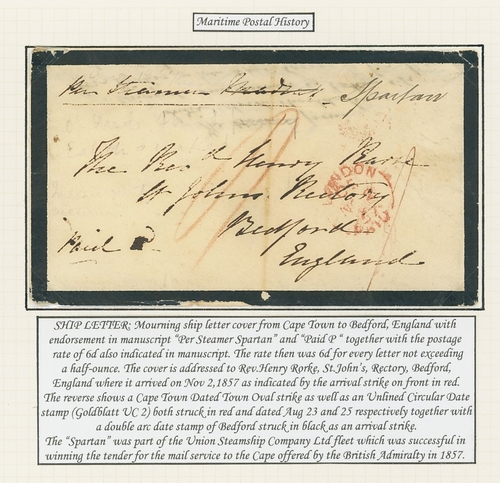 Maritime Postal History
Per Steamer Spartan
The Revd Henry
St Johns Rectory
LONDON
Bedford
Paid
England
SHIP LETTER; Mourning ship letter cover from Cape Town to Bedford, England with
endorsement in manuscript "Per Steamer Spartan" and "Paid P " together with the postage
rate of 6d also indicated in manuscript. The rate then was 6d for every letter not exceeding
a half-ounce. The cover is addressed to Rev.Henry Rorke, St.John's, Rectory, Bedford,
England where it arrived on Nov 2,1857 as indicated by the arrival strike on front in red.
The reverse shows a Cape Town Dated Town Oval strike as well as an Unlined Circular Date
stamp (Goldblatt UC 2) both struck in red and dated Aug 23 and 25 respectively together with
a double arc date stamp of Bedford struck in black as an arrival strike.
The "Spartan" was part of the Union Steamship Company Ltd fleet which was successful in
winning the tender for the mail service to the Cape offered by the British Admiralty in 1857.